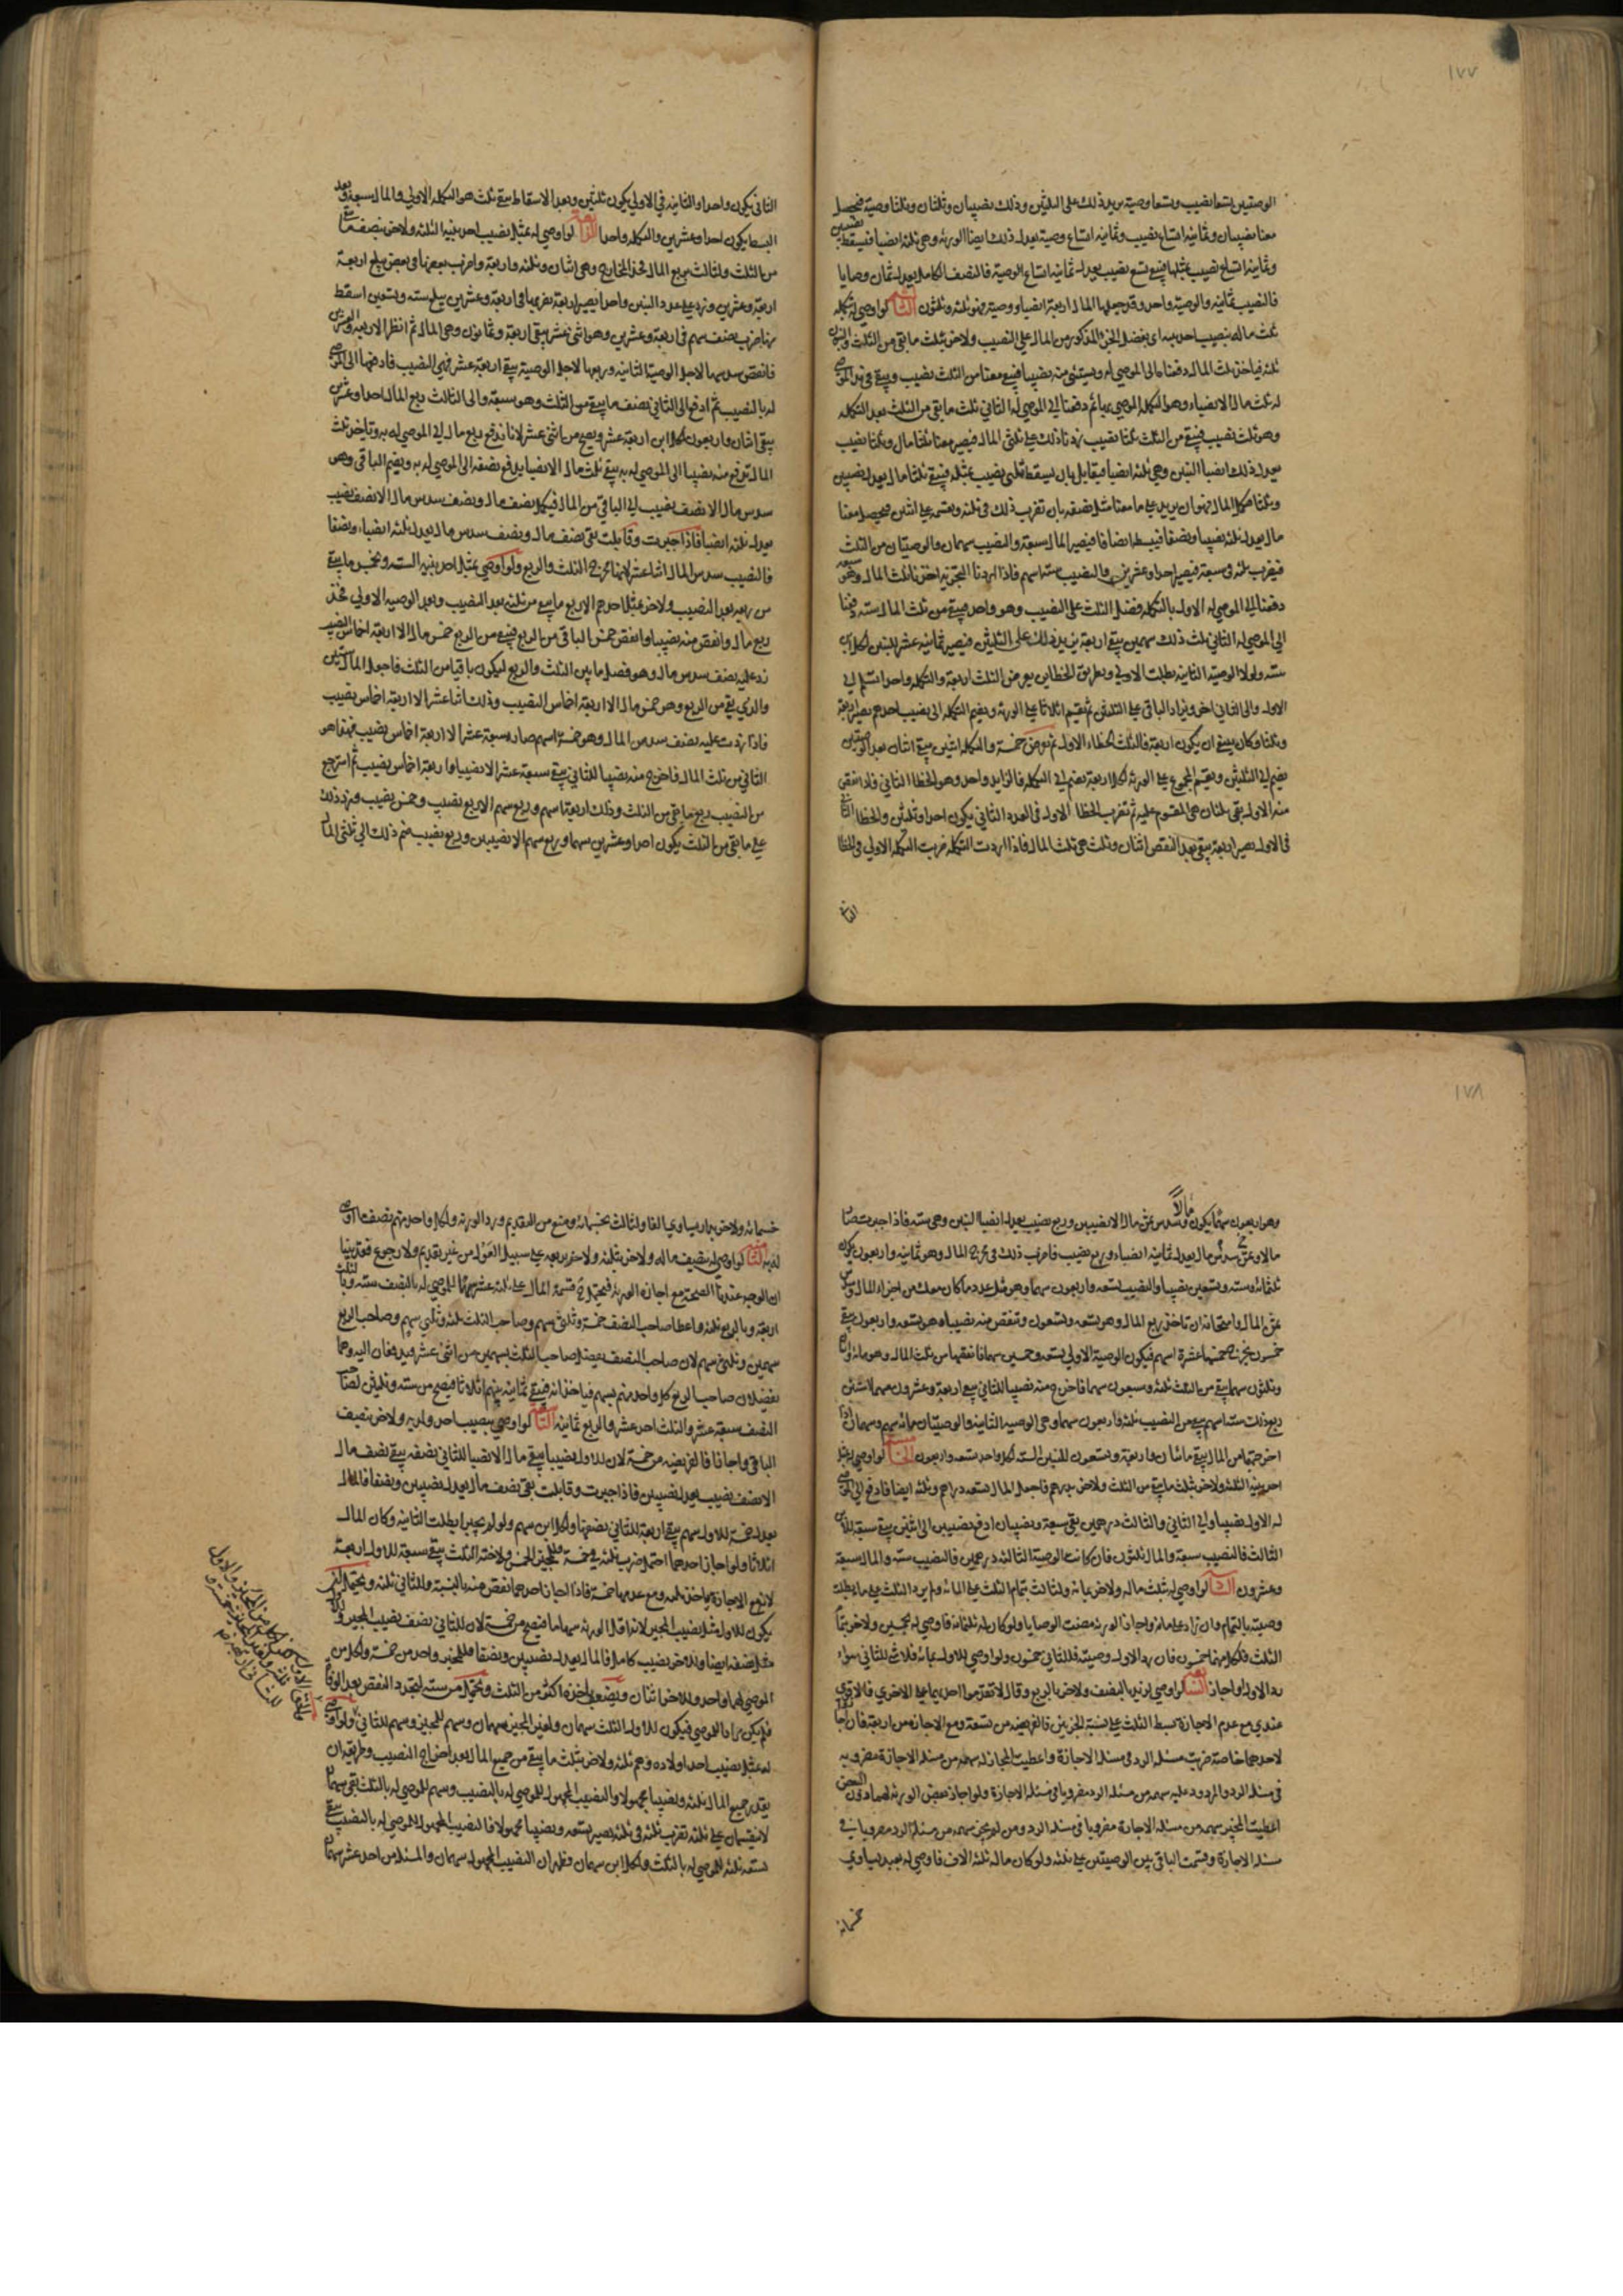 ١٧٧
الوصيتين تسعا نصيب وتسعا وصية نزيد ذلك على الثلثين وذلك نصيبان وثلثان وثلثا وصية فيحصل
معنا نصيبان وثمانية اتساع نصيب وثمانية اتساع وصية يعدل ذلك انصبا الورثة وهي ثلثة انصبا فيسقط نصيبين
وثمانية اتساع نصيب بمثلها فيبقى تسع نصيب يعدل ثمانية اتساع الوصية فالنصيب الكامل يعدل ثمان وصايا
فالنصيب ثمانية والوصية واحد وقد جعلنا المال اربعة انصبا ووصية فهو ثلثة وثلثون الثالث لو اوصى له بتكملة
ثلث ماله بنصيب احد بنيه اي بفضل الجزء المذكور من المال على النصيب ولاخر بثلث ما بقي من الثلث والبنون
ثلثة فياخذ ثلث المال دفعنا الى الموصى له ويستثنى منه نصيبا فيبقى معنا من الثلث نصيب ويبقى في يد الموصى
له ثلث مال الا نصيبا وهو التكملة الموصى بها ثم دفعنا الى الموصى له الثاني ثلث ما بقي من الثلث بعد التكملة
وهو ثلث نصيب فيبقى من الثلث ثلثا نصيب زدنا ذلك على ثلثي المال فيصير معنا ثلثا مال وثلثا نصيب
يعدل ذلك انصبا البنين وهي ثلثة انصبا فيقابل بان يسقط ثلثي نصيب بمثله فيبقى ثلثا مال يعدل نصيبين
وثلثا فكمل المال وهو ان يزيد على ما معنا مثل نصفه بان تضرب ذلك في ثلثة ويقسمه على اثنين فيحصل معنا
مال يعدل ثلثة نصيبا ونصفا فيبسطها انصافا فيصير المال سبعة والنصيب سهمان والوصيتان من الثلث
فيضرب ثلثة في سبعة فيصير احدا وعشرين والنصيب ستة اسهم فاذا اردنا التجزية اخذنا ثلث المال وهو سبعة
دفعنا الى الموصى له الاول بالتكملة فضل الثلث على النصيب وهو واحد فيبقى من ثلث المال ستة دفعنا
الى الموصى له الثاني ثلث ذلك سهمين يبقى اربعة نزيد ذلك على الثلثين فيصير ثمانية عشر للبنين لكل ابن
ستة ولولا الوصية الثانية بطلت الاولى وبطريق الخطاين يفرض الثلث اربعة والتكملة واحدا يسلم الى
الاول والى الثاني اخر ويزاد الباقي على الثلثين ثم تقسم اثلاثا على الورثة ويضم التكملة الى نصيب احدهم يصير اربعة
وثلثا وكان ينبغي ان يكون اربعة فالثلث الخطا الاول ثم نفرض خمسة والتكملة اثنين يبقى اثنان بعد الوصيتين
يضم الى الثلثين ويقسم المجموع على الورثة لكل اربعة يضم الى التكملة فالزايد واحد وهو الخطا الثاني فاذا انقص
منه الاول بقي ثلثان هي المقسوم عليه ثم تضرب الخطا الاول في العدد الثاني يكون احدا وثلثين والخطا الثاني
في الاول يصير اربعة يبقى بعد النقص اثنان وثلث هي ثلث المال فاذا اردت التكملة ضربت التكملة الاولى في الخطا
الثاني
الثاني يكون واحدا والثانية في الاولى يكون ثلثين وبعد الاسقاط يبقى ثلث هو التكملة الاولى والمال سبعة وبعد
البسط يكون احدا وعشرين والتكملة واحدا الرابع لو اوصى له بمثل نصيب احد بنيه الثلثة ولاخر بنصف ما بقي
من الثلث ولثالث بربع المال فخذ المخارج وهي اثنان وثلثة واربعة واضرب بعضها في بعض يبلغ اربعة
اربعة وعشرين وزد على عدد البنين واحدا يصير اربعة تضربها في اربعة وعشرين يبلغ ستة وتسعين اسقط
منها ضرب نصف سهم في اربعة وعشرين وهو اثنى عشر يبقى اربعة وثمانون وهي المال ثم انظر الاربعة والعشرين
فانقص سدسها لاجل الوصية الثانية وربعها لاجل الوصية يبقى اربعة عشر فهي النصيب فادفعها الى الموصى
له بالنصيب ثم ادفع الى الثاني نصف ما يبقى من الثلث وهو سبعة والى الثالث ربع المال احدا وعشرين
يبقى اثنان واربعون لكل ابن اربعة عشر ويصح من اثنى عشر لانا ندفع ربع مال الى الموصى له به وناخذ ثلث
المال ندفع منه نصيبا الى الموصى له به يبقى ثلث مال الا نصيبا يدفع نصفه الى الموصى له به ويضم الباقي وهو
سدس مال الا نصف نصيب الى الباقي من المال فيكمل نصف مال ونصف سدس مال الا نصف نصيب
يعدل ثلثة انصبا فاذا جبرت وقابلت بقي نصف مال ونصف سدس مال يعدل ثلثة انصبا ونصفا
فالنصيب سدس المال اثنا عشر لانها مخرج الثلث والربع ولو اوصى بمثل احد بنيه الستة وبخمس ما يبقى
من ربعه بعد النصيب ولاخر بمثل احدهم الا ربع ما يبقى من ثلثه بعد النصيب وبعد الوصية الاولى فخذ
ربع مال وانقص منه نصيبا وانقص خمس الباقي من الربع فيبقى من الربع خمس مال الا اربعة اخماس النصيب
زد عليه نصف سدس مال وهو فضل ما بين الثلث والربع ليكون باقيا من الثلث فاجعل المال ستين
والذي بقي من الربع وهو خمس مال الا اربعة اخماس النصيب وذلك اثنا عشر الا اربعة اخماس نصيب
فاذا زدت عليه نصف سدس المال وهو خمسة اسهم صار سبعة عشر الا اربعة اخماس نصيب فهذا هو
الثاني من ثلث المال فاخرج منه نصيبا للثاني يبقى سبعة عشر الا نصيبا واربعة اخماس نصيب ثم استرجع
من النصيب ربع ما بقي من الثلث وذلك اربعة اسهم وربع سهم الا ربع نصيب وخمس نصيب وزد ذلك
على ما بقي من الثلث يكون احدا وعشرين سهما وربع سهم الا نصيبين وربع نصيب ضم ذلك الى ثلثي المال
١٧٨
وهو اربعون سهما يكون مالا وسدس ثمن مال الا نصيبين وربع نصيب يعدل انصبا البنين وهي ستة فاذا جبرت صار
مالا وثمن سدس مال يعدل ثمانية انصبا وربع نصيب فاضرب ذلك في مخرج المال وهو ثمانية واربعون يكون
ثلثمائة وستة وتسعين نصيبا والنصيب تسعة واربعون سهما وهو مثل عدد ما كان معك من اجزاء المال وسدس
ثمن المال وامتحانه ان تاخذ ربع المال وهو تسعة وتسعون وتنقص منه نصيبا وهو تسعة واربعون يبقى
خمسون يخرج خمسها عشرة اسهم فيكون الوصية الاولى تسعة وخمسين سهما فانقصها من ثلث المال وهو مائة واثنان
وثلثون سهما يبقى من الثلث ثلثة وسبعون سهما فاخرج منه نصيبا للثاني يبقى اربعة وعشرون سهما استثن
ربع ذلك ستة اسهم يبقى من النصيب ثلثة واربعون سهما وهي الوصية الثانية والوصيتان مائة سهم وسهمان فاذا
اخرجتهما من المال يبقى مائتان واربعة وتسعون للبنين الستة لكل واحد تسعة واربعون الخامس لو اوصى له بمثل
احد بنيه الثلثة ولاخر بثلث ما يبقى من الثلث ولاخر بدرهم فاجعل المال تسعة دراهم وثلثة انصبا فادفع الى الموصى
له الاول نصيبا والى الثاني والثالث درهمين بقي سبعة ونصيبان ادفع نصيبين الى ابنين يبقى سبعة للابن
الثالث فالنصيب سبعة والمال ثلثون فان كانت الوصية الثالثة درهمين فالنصيب ستة والمال سبعة
وعشرون السادس لو اوصى له بثلث ماله ولاخر بمائة ولثالث بتمام الثلث على المائة ولم يزد الثلث على مائة بطلت
وصية بالتمام وان زاد على مائة واجاز الورثة مضت الوصايا ولو كان له ثلثمائة فاوصى له بخمسين ولاخر بتمام
الثلث فلكل منهما خمسون فان رد الاول وصيته فللثاني خمسون ولو اوصى للاول بمائة فلا شي للثاني سواء
رد الاول او اجاز السابع لو اوصى لزيد بالنصف ولاخر بالربع وقال لا تقدموا احديهما على الاخرى فالاقوى
عندي مع عدم الاجازة بسط الثلث على نسبة الجزئين فالفريضة من تسعة ومع الاجازة من اربعة فان اجازوا
لاحدهما خاصة ضربت مسئلة الرد في مسئلة الاجازة واعطيت المجاز له سهمه من مسئلة الاجازة مضروبا
في مسئلة الرد والمردود عليه سهمه من مسئلة الرد مضروبا في مسئلة الاجازة ولو اجاز بعض الورثة لهما دون البعض
اعطيت المجيز سهمه من مسئلة الاجازة مضروبا في مسئلة الرد ومن لم يجز سهمه من مسئلة الرد مضروبا في
مسئلة الاجازة وقسمت الباقي بين الوصيتين على ثلثة ولو كان ماله ثلثة الاف فاوصى له بعبد يساوي
خمسمائة
خمسمائة ولاخر بدار يساوي الفا ولثالث بخمسمائة ومنع من التقديم ورد الورثة فلكل واحد منهم نصف ما اوصى
له به الثامن لو اوصى له بنصف ماله ولاخر بثلثه ولاخر بربعه على سبيل العول من غير تقديم ولا رجوع فقد بينا
ان الوجه عندنا الصحة مع اجازة الورثة فيحتمل ح قسمة المال على ثلثة عشر سهما للموصى له بالنصف ستة وبالثلث
اربعة وبالربع ثلثة واعطا صاحب النصف خمسة وثلثي سهم وصاحب الثلث ثلثة وثلثي سهم وصاحب الربع
سهمين وثلثي سهم لان صاحب النصف يفضل صاحب الثلث بسهمين من اثنى عشر فيدفعان اليه وهما
يفضلان صاحب الربع كل واحد منهم بسهم فياخذانه فيبقى ثمانية بينهم اثلاثا فيصح من ستة وثلثين لصاحب
النصف سبعة عشر والثلث احد عشر والربع ثمانية التاسع لو اوصى بنصيب احد ولديه ولاخر بنصف
الباقي واجازا فالفريضة من خمسة لان للاول نصيبا يبقى مال الا نصيبا للثاني نصفه يبقى نصف مال
الا نصف نصيب يعدل نصيبين فاذا جبرت وقابلت بقي نصف مال يعدل نصيبين ونصفا فالمال
يعدل خمسة للاول سهم يبقى اربعة للثاني نصفها ولكل ابن سهم ولو لم يجيزا بطلت الثانية وكان المال
اثلاثا ولو اجاز احدهما احتمل ضرب ثلثة في خمسة فللمجيز الخمس ولاخر الثلث يبقى سبعة للاول اربعة
يكون للاول مثل نصيب المجيز لانه اقل الورثة سهاما فيصح من خمسة لان للثاني نصف نصيب المجيز وللاول
مثل نصفه ايضا وللاخر نصيب كامل فالمال يعدل نصيبين ونصفا فللمجيز واحد من خمسة ولكل من
الموصى لهما واحد وللاخر اثنان ويضعف باخذه اكثر من الثلث ويحتمل من ستة لتجدد النقص بعد الوفاة
فلم يكن مرادا للموصي فيكون للاول الثلث سهمان ولغير المجيز سهمان وسهم للمجيز وسهم للثاني ولو اوصى
له بمثل نصيب احد اولاده وهم ثلثة ولاخر بثلث ما يبقى من جميع المال بعد اخراج النصيب وطريقه ان
يقدر جميع المال ثلثة ونصيبا مجهولا والنصيب المجهول للموصى له بالنصيب وسهم للموصى له بالثلث بقي سهمان
لا ينقسمان على ثلثة تضرب ثلثة في ثلثة يصير تسعة ونصيبا مجهولا فالنصيب المجهول للموصى له بالنصيب يبقى
تسعة ثلثة للموصى له بالثلث ولكل ابن سهمان وظهر ان النصيب المجهول سهمان والمسئلة من احد عشر سهما